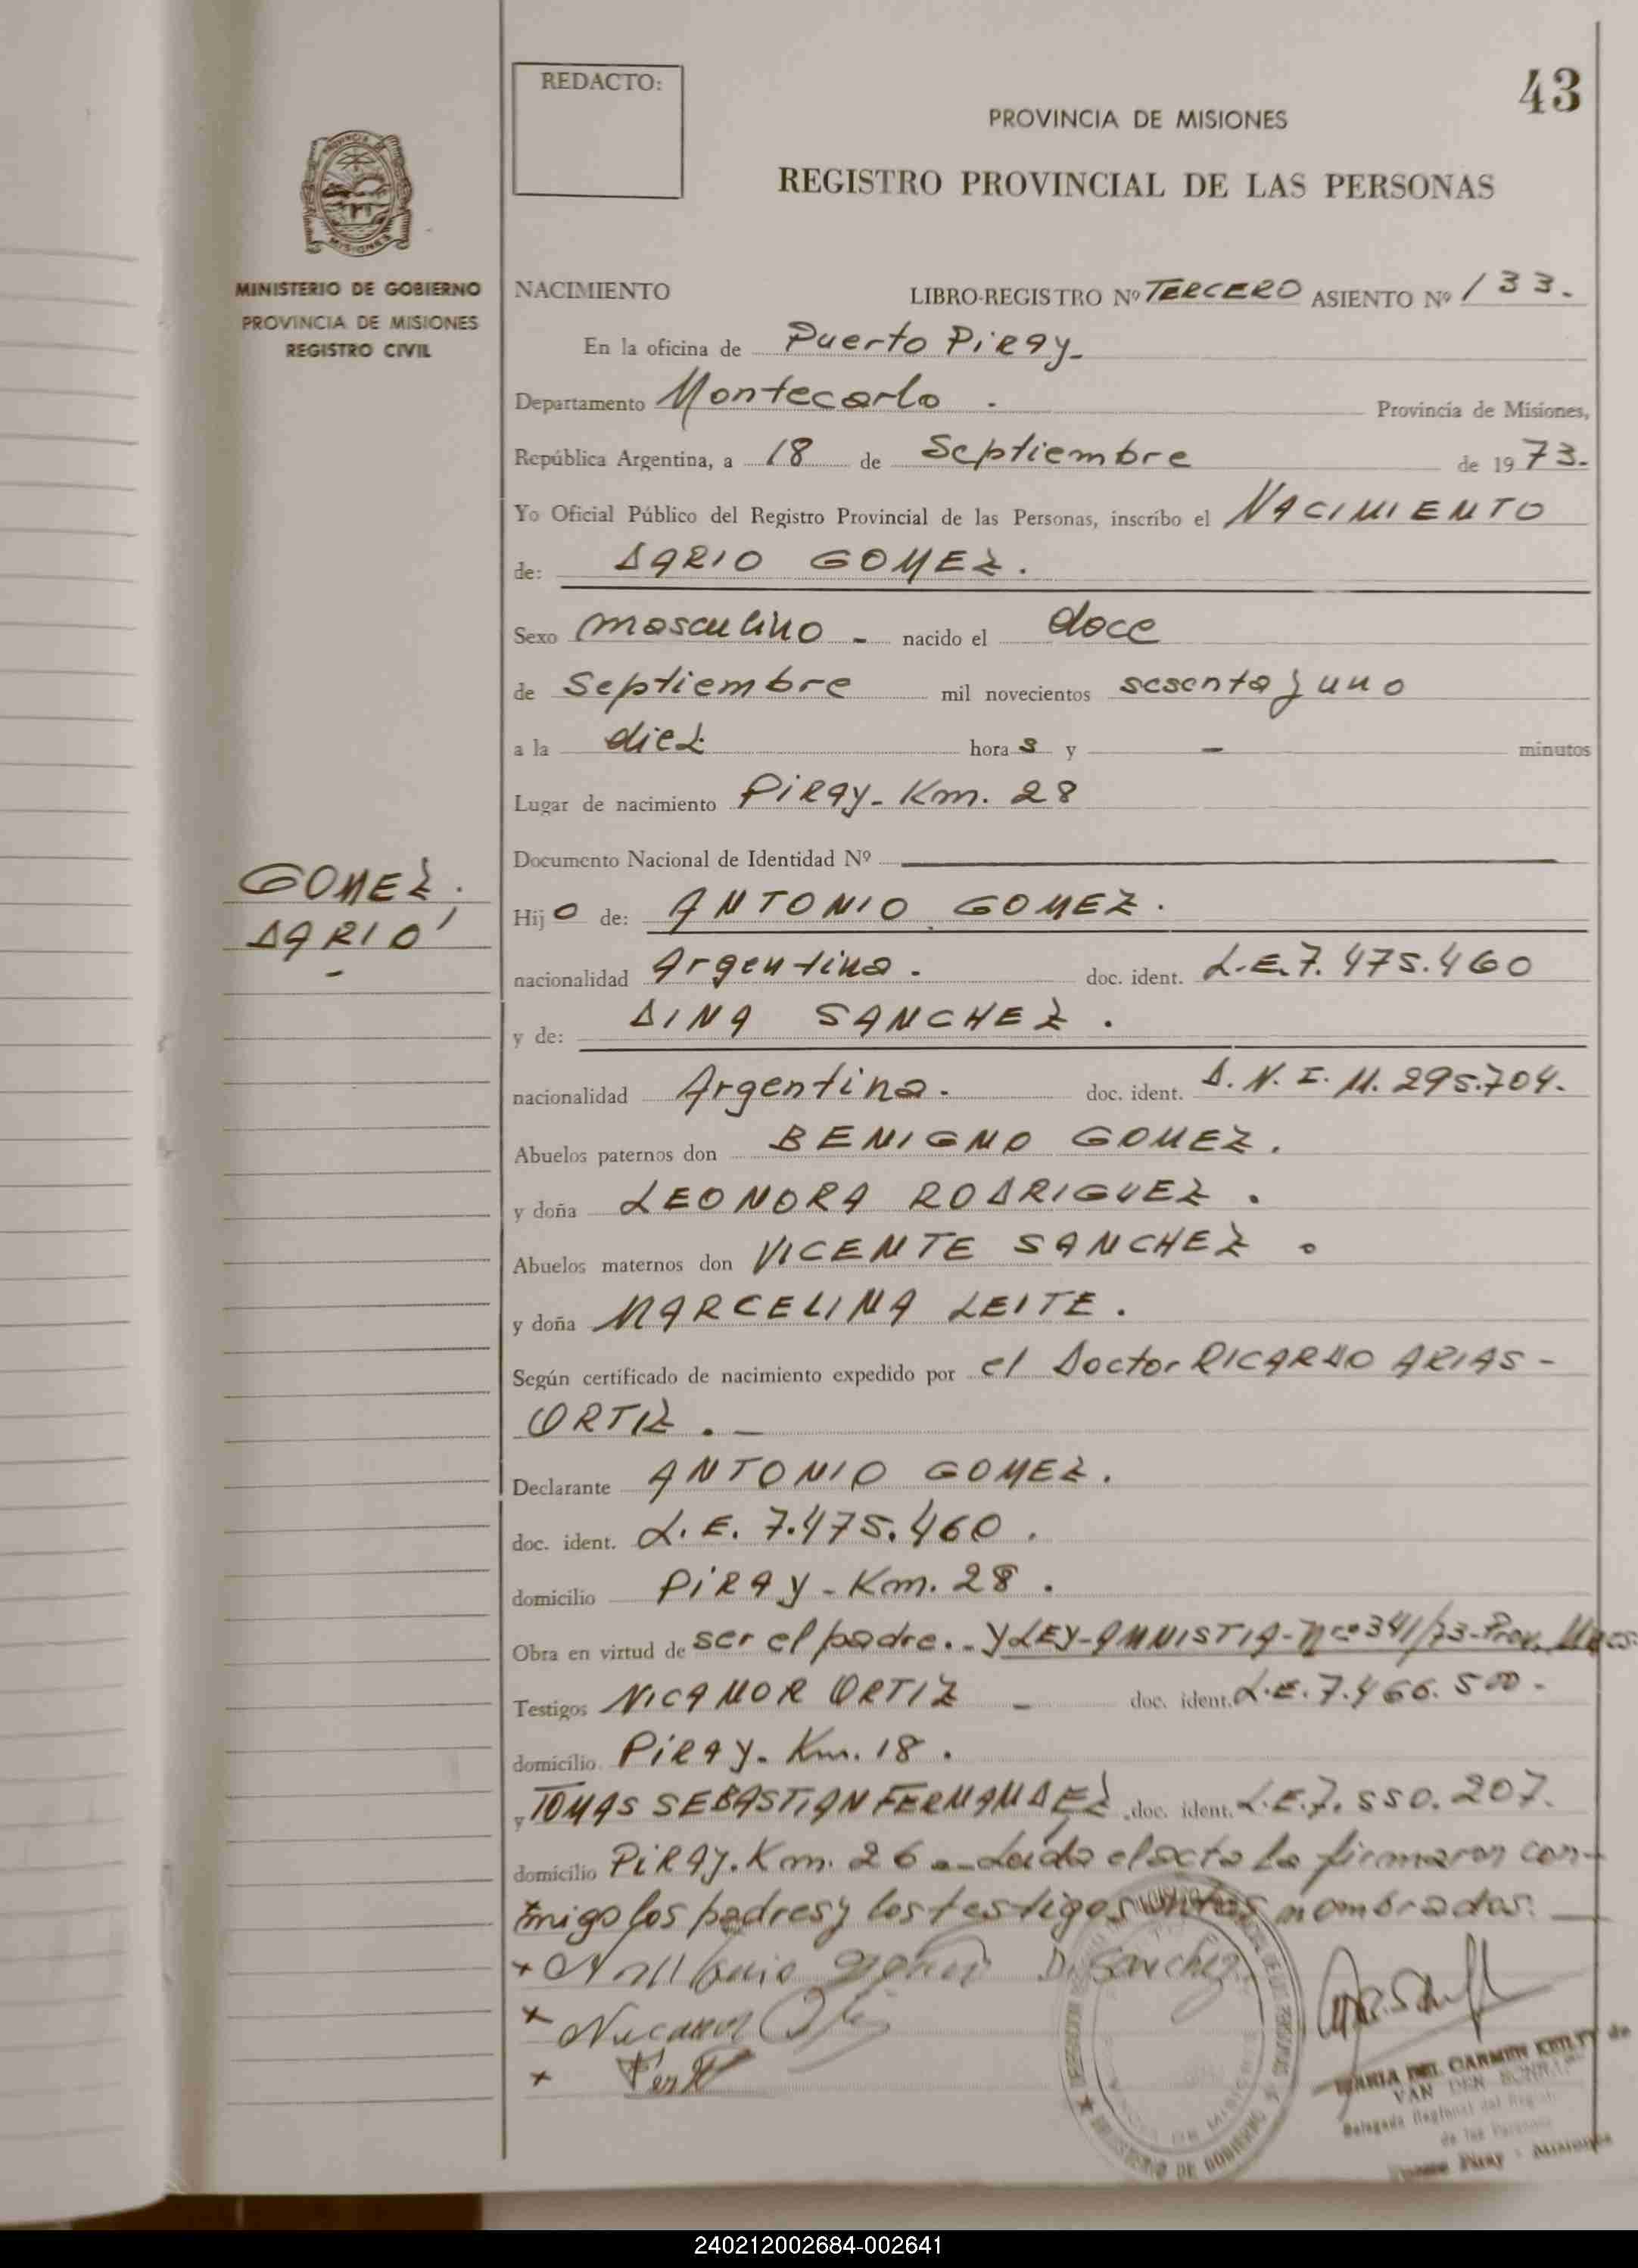 43
REDACTO:
PROVINCIA DE MISIONES
REGISTRO PROVINCIAL DE LAS PERSONAS
MINISTERIO DE GOBIERNO
PROVINCIA DE MISIONES
REGISTRO CIVIL
NACIMIENTO LIBRO-REGISTRO Nº TERCERO ASIENTO Nº 133.
En la oficina de Puerto PiRAy-
Departamento Montecarlo . Provincia de Misiones,
República Argentina, a 18 de Septiembre de 1973.
Yo Oficial Público del Registro Provincial de las Personas, inscribo el NACIMIENTO
de: DARIO GOMEZ.
Sexo masculino - nacido el doce
de Septiembre mil novecientos sesenta y uno
a la diez horas y - minutos
Lugar de nacimiento PiRAy- Km. 28
Documento Nacional de Identidad Nº
GOMEZ,
DARIO
-
Hijo de: ANTONIO GOMEZ.
nacionalidad Argentina. doc. ident. L.E.7.475.460
y de: DINA SANCHEZ.
nacionalidad Argentina. doc. ident. D.N.I. 11.295.704.
Abuelos paternos don BENIGNO GOMEZ.
y doña LEONORA RODRIGUEZ.
Abuelos maternos don VICENTE SANCHEZ.
y doña MARCELINA LEITE.
Según certificado de nacimiento expedido por el Doctor RICARDO ARIAS-
ORTIZ. -
Declarante ANTONIO GOMEZ.
doc. ident. L.E. 7.475.460.
domicilio PiRAy - Km. 28.
Obra en virtud de ser el padre.- Y LEY-AMNISTIA-Nº 341/73-Prov.
Testigos NICANOR ORTIZ - doc. ident. L.E.7.466.500-
domicilio PiRAy- Km. 18.
y TOMAS SEBASTIAN FERNANDEZ doc. ident. L.E.7.550.207.
domicilio PiRAy. Km. 26.- Leída el acta la firmaron con-
migo los padres y los testigos antes nombrados.
D. Sanchez
MARIA DEL CARMEN KEILTY de
VAN DEN
Delegada Regional del Registro
de las Personas
Puerto Piray - Misiones
MINISTERIO DE GOBIERNO
240212002684-002641